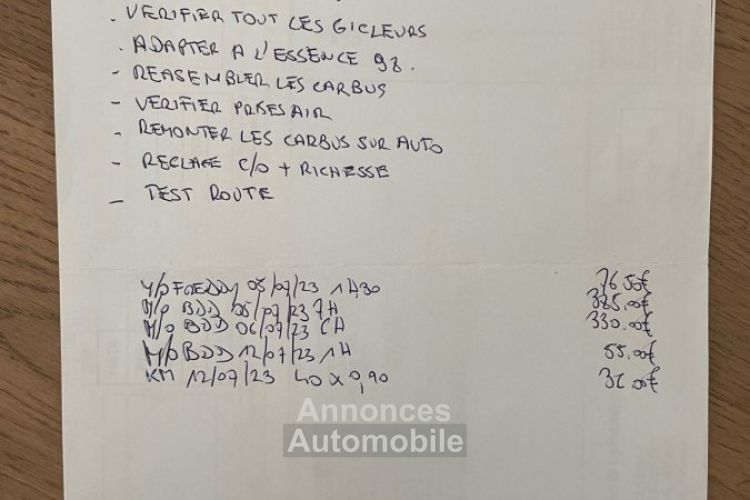 . VERIFIER TOUT LES GICLEURS
. ADAPTER A L'ESSENCE 98.
- REASEMBLER LES CARBUS
- VERIFIER PRISES AIR
- REMONTER LES CARBUS SUR AUTO
- REGLAGE C/O + RICHESSE
- TEST ROUTE
M/O FREDDY 05/07/23 1H30 76.50€
M/O BDD 05/07/23 7H 385.00€
M/O BDD 06/07/23 6H 330.00€
M/O BDD 12/07/23 1H 55.00€
KM 12/07/23 40 x 0,90
Annonces
Automobile